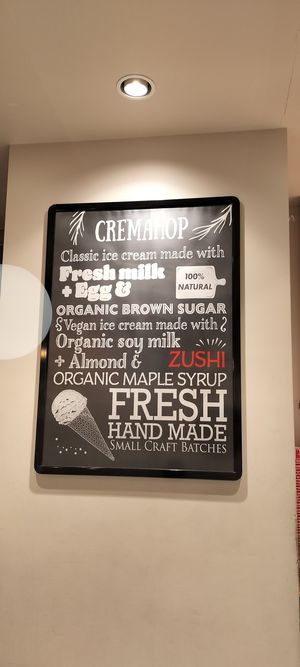 CREMAHOP
Classic ice cream made with
Fresh milk
+ Egg &
100%
NATURAL
ORGANIC BROWN SUGAR
Vegan ice cream made with
Organic soy milk
+ Almond & ZUSHI
ORGANIC MAPLE SYRUP
FRESH
HAND MADE
SMALL CRAFT BATCHES